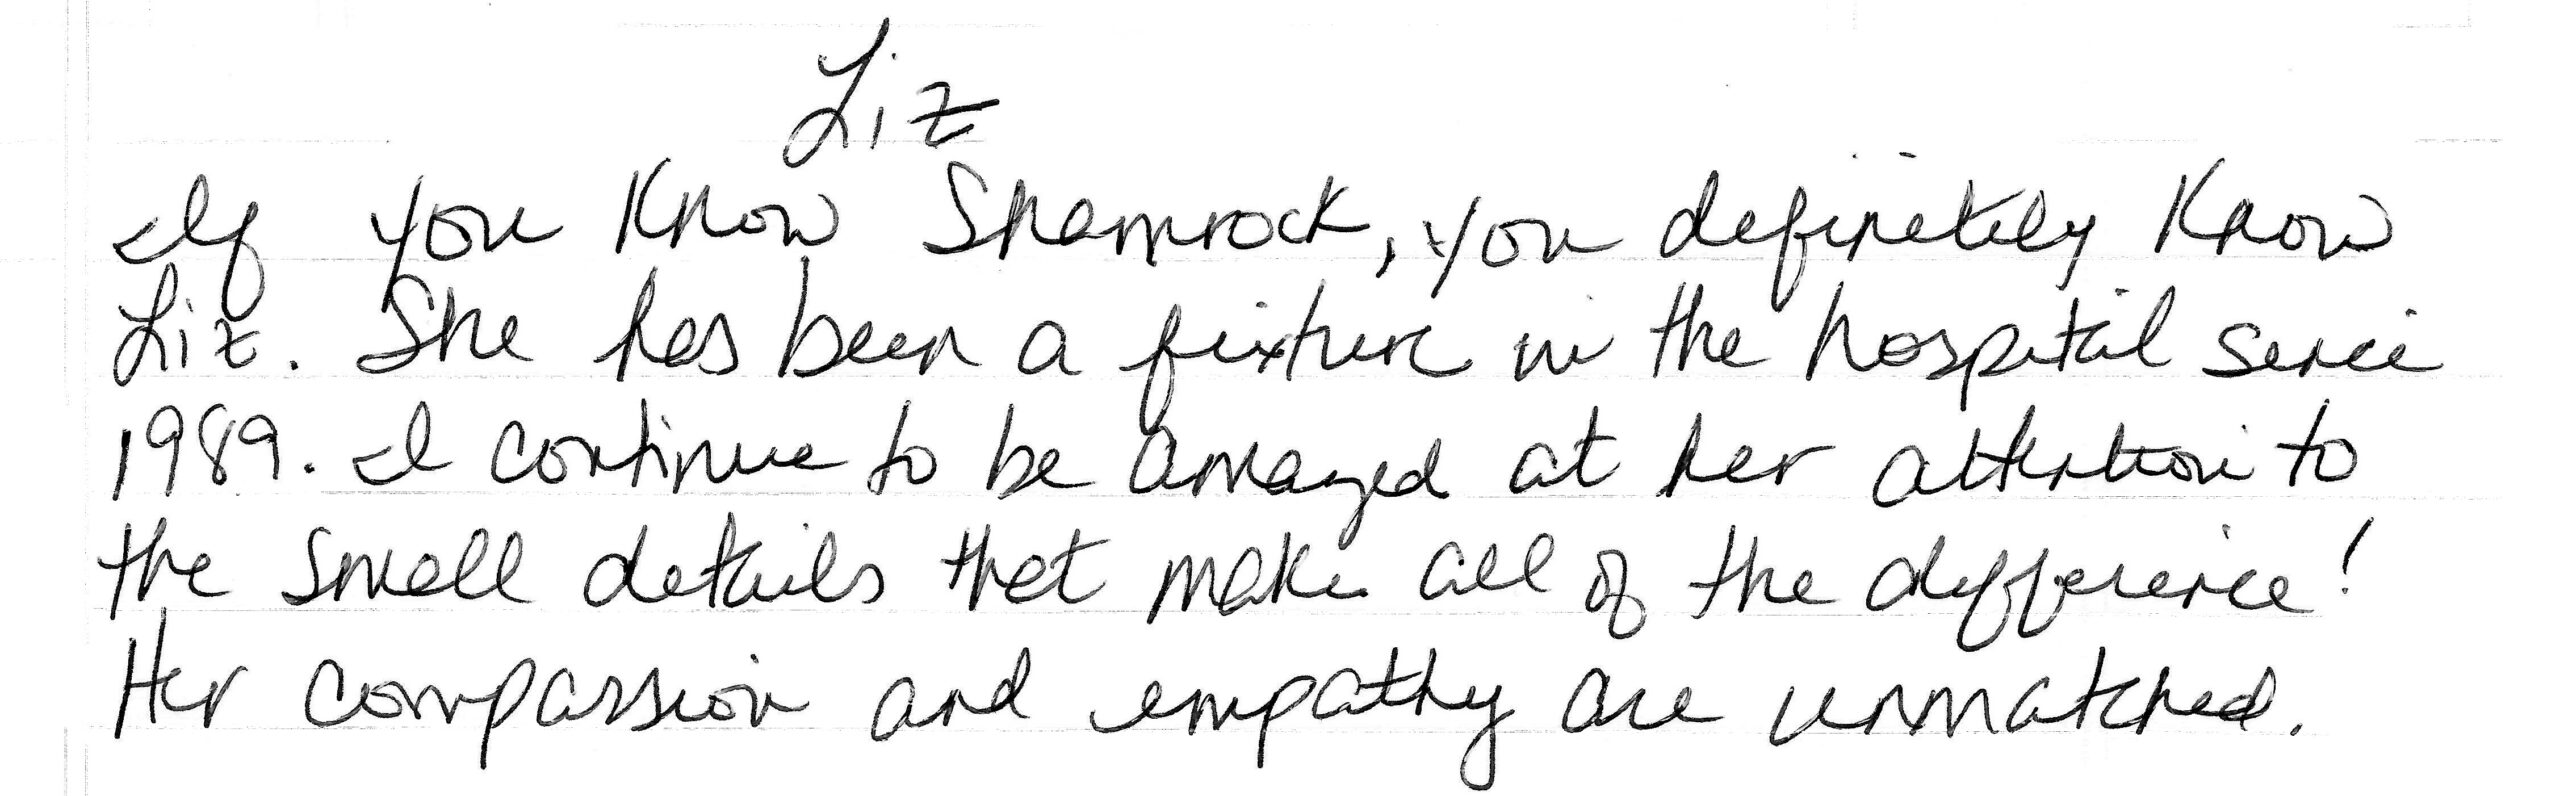 Liz
If you know Shamrock, you definitely know
Liz. She has been a fixture in the hospital since
1989. I continue to be amazed at her attention to
the small details that make all of the difference!
Her compassion and empathy are unmatched.